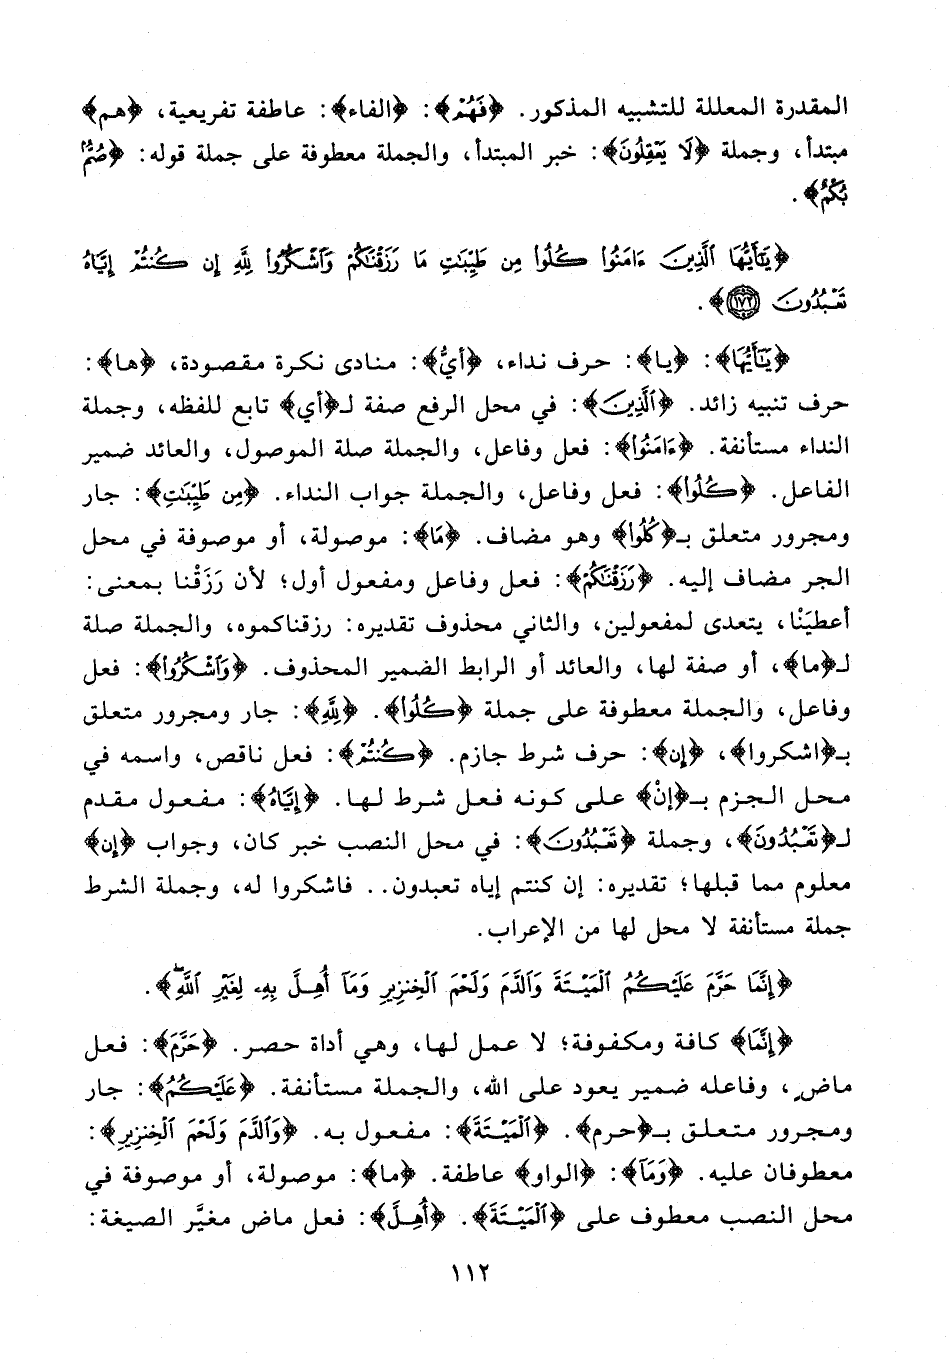 المقدرة المعللة للتشبيه المذكور. ﴿فَهُمْ﴾: ﴿الفاء﴾: عاطفة تفريعية، ﴿هم﴾
مبتدأ، وجملة ﴿لَا يَعْقِلُونَ﴾: خبر المبتدأ، والجملة معطوفة على جملة قوله: ﴿صُمٌّ
بُكْمٌ﴾.
﴿يَٰٓأَيُّهَا ٱلَّذِينَ ءَامَنُوا۟ كُلُوا۟ مِن طَيِّبَٰتِ مَا رَزَقْنَٰكُمْ وَٱشْكُرُوا۟ لِلَّهِ إِن كُنتُمْ إِيَّاهُ
تَعْبُدُونَ ١٧٢﴾.
﴿يَٰٓأَيُّهَا﴾: ﴿يا﴾: حرف نداء، ﴿أيُّ﴾: منادى نكرة مقصودة، ﴿ها﴾:
حرف تنبيه زائد. ﴿ٱلَّذِينَ﴾: في محل الرفع صفة لـ﴿أي﴾ تابع للفظه، وجملة
النداء مستأنفة. ﴿ءَامَنُوا۟﴾: فعل وفاعل، والجملة صلة الموصول، والعائد ضمير
الفاعل. ﴿كُلُوا۟﴾: فعل وفاعل، والجملة جواب النداء. ﴿مِن طَيِّبَٰتِ﴾: جار
ومجرور متعلق بـ﴿كُلُوا۟﴾ وهو مضاف. ﴿مَا﴾: موصولة، أو موصوفة في محل
الجر مضاف إليه. ﴿رَزَقْنَٰكُمْ﴾: فعل وفاعل ومفعول أول؛ لأن رَزَقْنا بمعنى:
أعطيْنا، يتعدى لمفعولين، والثاني محذوف تقديره: رزقناكموه، والجملة صلة
لـ﴿ما﴾، أو صفة لها، والعائد أو الرابط الضمير المحذوف. ﴿وَٱشْكُرُوا۟﴾: فعل
وفاعل، والجملة معطوفة على جملة ﴿كُلُوا۟﴾. ﴿لِلَّهِ﴾: جار ومجرور متعلق
بـ﴿اشكروا﴾، ﴿إِن﴾: حرف شرط جازم. ﴿كُنتُمْ﴾: فعل ناقص، واسمه في
محل الجزم بـ﴿إنْ﴾ على كونه فعل شرط لها. ﴿إِيَّاهُ﴾: مفعول مقدم
لـ﴿تَعْبُدُونَ﴾، وجملة ﴿تَعْبُدُونَ﴾: في محل النصب خبر كان، وجواب ﴿إن﴾
معلوم مما قبلها؛ تقديره: إن كنتم إياه تعبدون.. فاشكروا له، وجملة الشرط
جملة مستأنفة لا محل لها من الإعراب.
﴿إِنَّمَا حَرَّمَ عَلَيْكُمُ ٱلْمَيْتَةَ وَٱلدَّمَ وَلَحْمَ ٱلْخِنزِيرِ وَمَآ أُهِلَّ بِهِۦ لِغَيْرِ ٱللَّهِۖ﴾.
﴿إِنَّمَا﴾ كافة ومكفوفة؛ لا عمل لها، وهي أداة حصر. ﴿حَرَّمَ﴾: فعل
ماضٍ، وفاعله ضمير يعود على الله، والجملة مستأنفة. ﴿عَلَيْكُمُ﴾: جار
ومجرور متعلق بـ﴿حرم﴾. ﴿ٱلْمَيْتَةَ﴾: مفعول به. ﴿وَٱلدَّمَ وَلَحْمَ ٱلْخِنزِيرِ﴾:
معطوفان عليه. ﴿وَمَآ﴾: ﴿الواو﴾ عاطفة. ﴿ما﴾: موصولة، أو موصوفة في
محل النصب معطوف على ﴿ٱلْمَيْتَةَ﴾. ﴿أُهِلَّ﴾: فعل ماض مغيَّر الصيغة:
١١٢